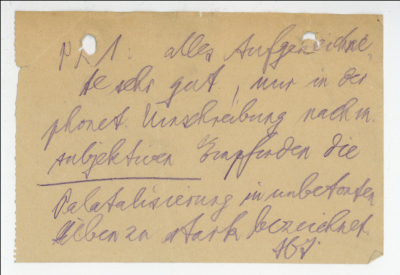 Nr 1. alles Aufgezeichne
te sehr gut, nur in der
phonet. Umschreibung nach m.
subjektiven Empfinden die
Palatalisierung in unbetonten
Silben zu stark bezeichnet.